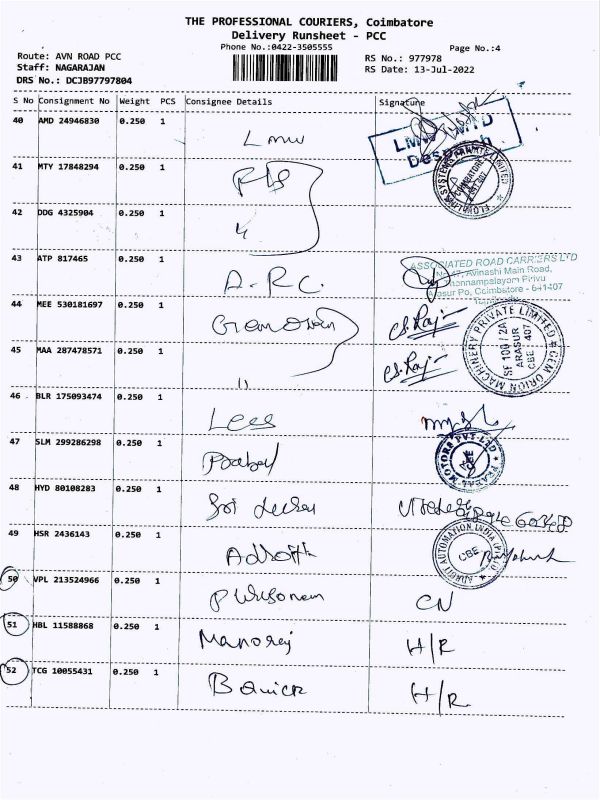 THE PROFESSIONAL COURIERS, Coimbatore
Delivery Runsheet - PCC
Phone No.:0422-3505555
Page No.:4
Route: AVN ROAD PCC
Staff: NAGARAJAN
DRS No.: DCJB97797804
RS No.: 977978
RS Date: 13-Jul-2022
S No Consignment No Weight PCS Consignee Details Signature
40 AMD 24946830 0.250 1 Lmw
LMW - MTD
Despatch
41 MTY 17848294 0.250 1
42 DDG 4325904 0.250 1 "
43 ATP 817465 0.250 1 A.R.C.
ASSOCIATED ROAD CARRIERS LTD
Avinashi Main Road,
Arasur Po, Coimbatore - 641407
44 MEE 530181697 0.250 1 C.S.Raj
45 MAA 287478571 0.250 1 " C.S.Raj
GEM ORION MACHINERY PRIVATE LIMITED
SF 100 / 2A
ARASUR
CBE 407
46 BLR 175093474 0.250 1 Lees
47 SLM 299286298 0.250 1
MOTORS PVT LTD
CBE
48 HYD 80108283 0.250 1 Sri
49 HSR 2436143 0.250 1
AUTOMATION INDIA
CBE
50 VPL 213524966 0.250 1 CN
51 HBL 11588868 0.250 1 Manoraj H/R
52 TCG 10055431 0.250 1 H/R